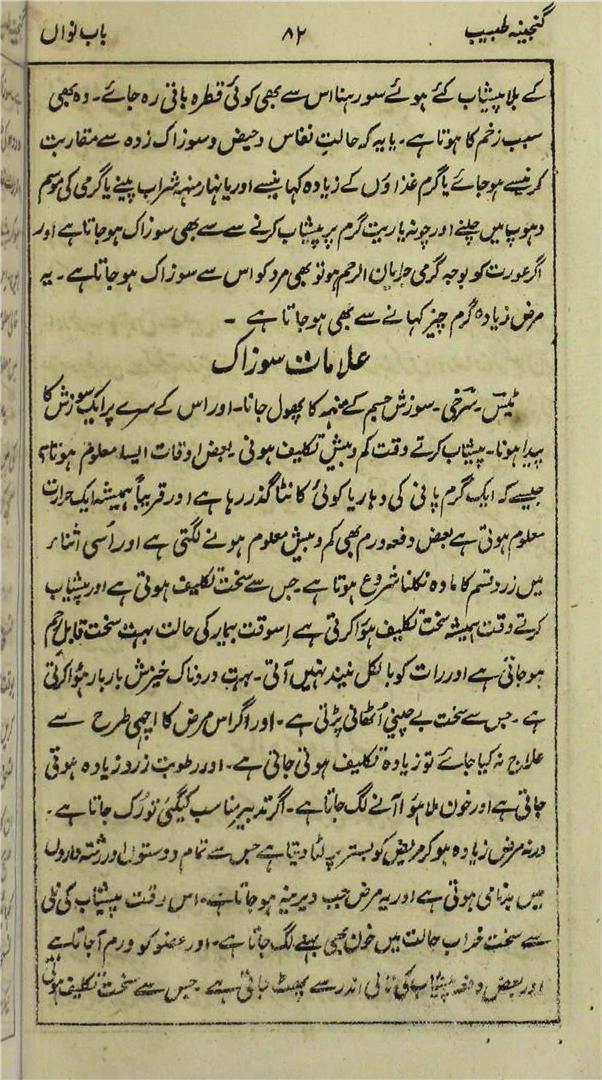 گنجینہ طبیب ۸۲ باب نواں
کے بلا پیشاب کئے ہوئے سو رہنا اس سے بھی کوئی قطرہ باقی رہ جائے۔ وہ بھی
سبب زخم کا ہوتا ہے۔ یا یہ کہ حالت نفاس و حیض و سوزاک زدہ سے مقاربت
کرنیسے ہو جائے یا گرم غذاؤں کے زیادہ کہا نیسے اور یا نہار منہہ شراب پینے یا گرمی کی موسم
دہوپ میں چلنے اور چونہ یا ریت گرم پر پیشاب کرنے سے سے بھی سوزاک ہو جاتا ہے اور
اگر عورت کو بوجہ گرمی جریان الرحم ہو تو بھی مرد کو اس سے سوزاک ہو جاتا ہے۔ یہ
مرض زیادہ گرم چیز کہانے سے بھی ہو جاتا ہے ۔
علامات سوزاک
ٹیس۔ سرخی۔ سوزش جسم کے منہہ کا پھول جانا۔ اور اس کے سرے پر ایک سوزش کا
پیدا ہونا۔ پیشاب کرتے وقت کم و بیش تکلیف ہونی بعض اوقات ایسا معلوم ہوتا ہے
جیسے کہ ایک گرم پانی کی دہار یا کوئی کانٹا گذر رہا ہے اور قریباً ہمیشہ ایک حرارت
معلوم ہوتی ہے بعض دفعہ ورم بھی کم و بیش معلوم ہونے لگتی ہے اور اُسی اثناء
میں زرد قسم کا مادہ نکلنا شروع ہوتا ہے جس سے سخت تکلیف ہوتی ہے اور پیشاب
کرتے وقت ہمیشہ سخت تکلیف ہؤا کرتی ہے اِسوقت بیمار کی حالت بہت سخت قابل رحم
ہو جاتی ہے اور رات کو بالکل نیند نہیں آتی۔ بہت دردناک خیزش بار بار ہؤا کرتی
ہے۔ جس سے سخت بے چینی اُٹھانی پڑتی ہے۔ اور اگر اس مرض کا اچھی طرح سے
علاج نہ کیا جائے تو زیادہ تکلیف ہوتی جاتی ہے۔ اور رطوبت زرد زیادہ ہوتی
جاتی ہے اور خون ملا ہؤا آنے لگ جاتا ہے۔ اگر تدبیر مناسب کیگئی تو رُک جاتا ہے۔
ورنہ مرض زیادہ ہو کر مریض کو بستر پر لٹا دیتا ہے جس سے تمام دوستوں اور رشتہ داروں
میں بدنامی ہوتی ہے اور یہ مرض جب دیرینہ ہو جاتا ہے۔ اس وقت پیشاب کی نلی
سے سخت خراب حالت میں خون بھی بہنے لگ جاتا ہے۔ اور عضو کو ورم آ جاتا ہے
اور بعض دفعہ پیشاب کی نالی اندر سے پھٹ جاتی ہے جس سے سخت تکلیف ہوتی